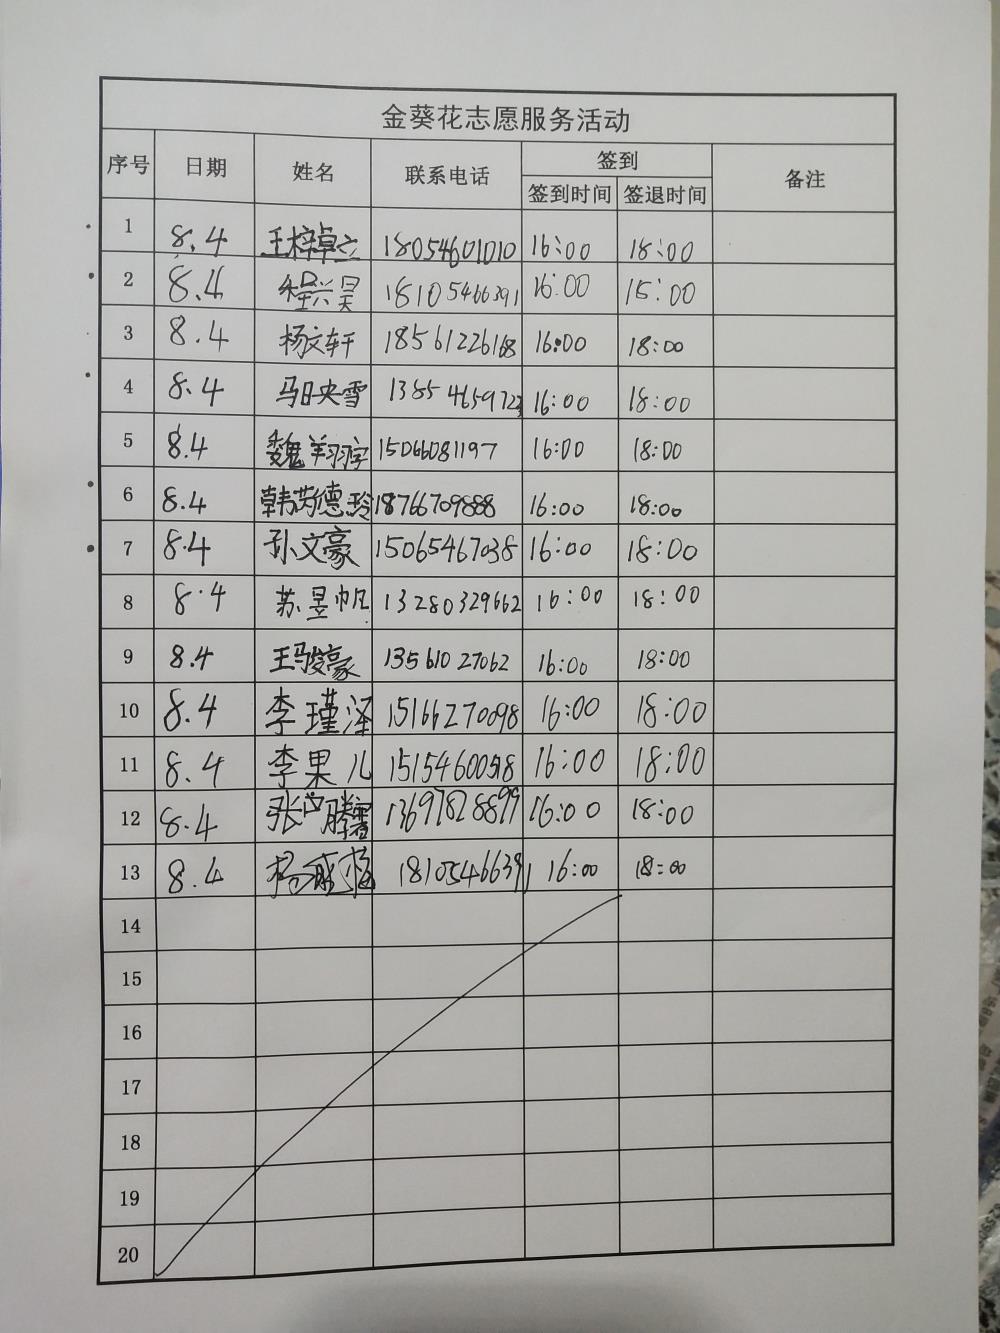 金葵花志愿服务活动
序号 日期 姓名 联系电话 签到 备注
签到时间 签退时间
1 8.4 王梓卓立 18054601010 16:00 18:00
2 8.4 程兴昊 18105466391 16:00 15:00
3 8.4 杨文轩 18561226168 16:00 18:00
4 8.4 马映雪 1385465972 16:00 18:00
5 8.4 魏翔宇 15066081197 16:00 18:00
6 8.4 韩芮德玲 18766709888 16:00 18:00
7 8.4 孙文豪 15065467038 16:00 18:00
8 8.4 苏昱帆 13280329662 16:00 18:00
9 8.4 王骏豪 13561027062 16:00 18:00
10 8.4 李瑾泽 15166270098 16:00 18:00
11 8.4 李果儿 15154600518 16:00 18:00
12 8.4 张 13697828899 16:00 18:00
13 8.4 杨 18105466391 16:00 18:00
14
15
16
17
18
19
20